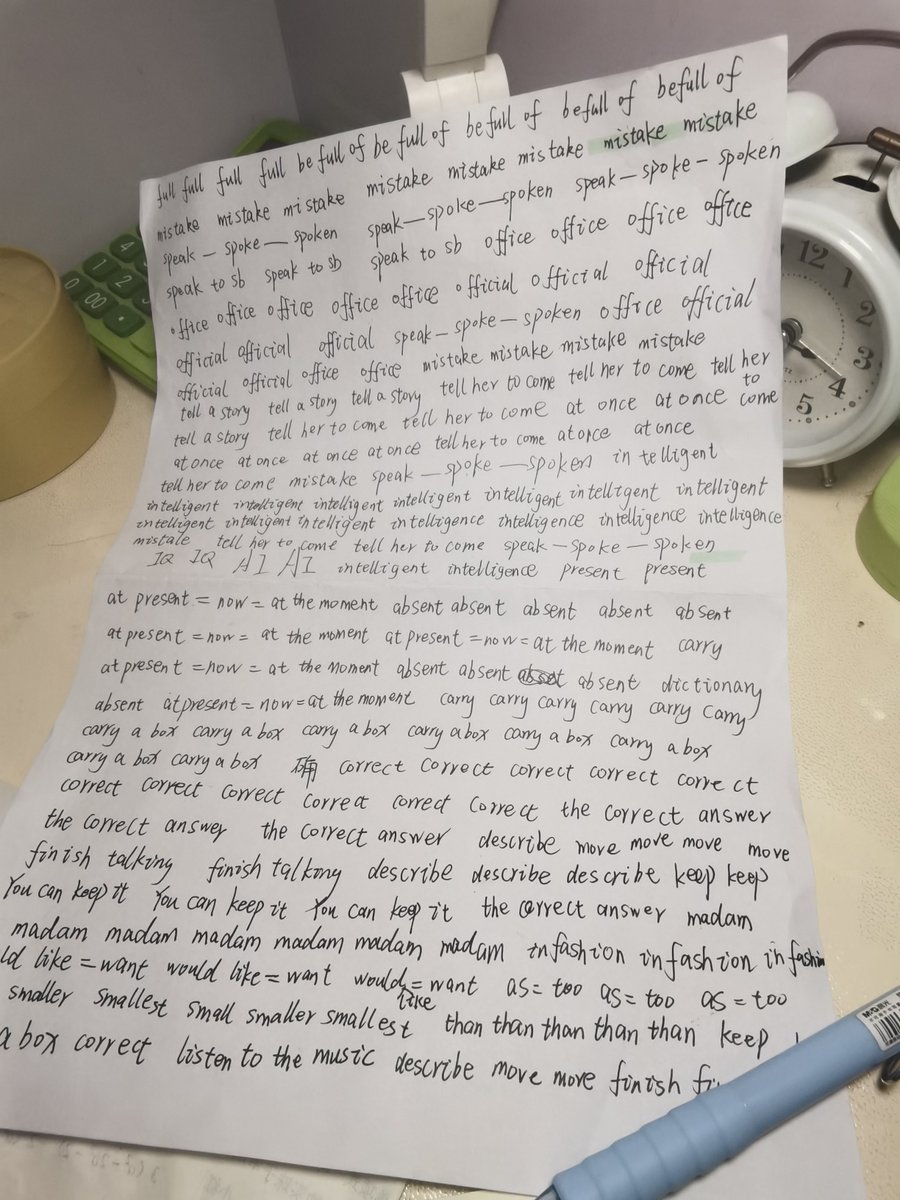 full full full full be full of be full of be full of be full of be full of
mistake mistake mistake mistake mistake mistake mistake mistake
speak — spoke — spoken speak — spoke — spoken speak — spoke — spoken
speak to sb speak to sb speak to sb office office office office
office office office office office official official official
official official official speak — spoke — spoken office official
official official office office mistake mistake mistake mistake
tell a story tell a story tell a story tell her to come tell her to come tell her
tell a story tell her to come tell her to come at once at once to come
at once at once at once at once tell her to come at once at once
tell her to come mistake speak — spoke — spoken intelligent
intelligent intelligent intelligent intelligent intelligent intelligent intelligent
intelligent intelligent intelligent intelligence intelligence intelligence intelligence
mistake tell her to come tell her to come speak — spoke — spoken
IQ IQ AI AI intelligent intelligence present present
at present = now = at the moment absent absent absent absent absent
at present = now = at the moment at present = now = at the moment carry
at present = now = at the moment absent absent absent dictionary
absent at present = now = at the moment carry carry carry carry carry carry
carry a box carry a box carry a box carry a box carry a box carry a box
carry a box carry a box 确 correct correct correct correct correct
correct correct correct correct correct correct the correct answer
the correct answer the correct answer describe move move move move
finish talking finish talking describe describe describe keep keep
You can keep it You can keep it You can keep it the correct answer madam
madam madam madam madam madam madam in fashion in fashion in fashion
ld like = want would like = want would like = want as = too as = too as = too
smaller smallest small smaller smallest than than than than than keep
a box correct listen to the music describe move move finish
12 1 2 3 4 5
M&G
4
1
00